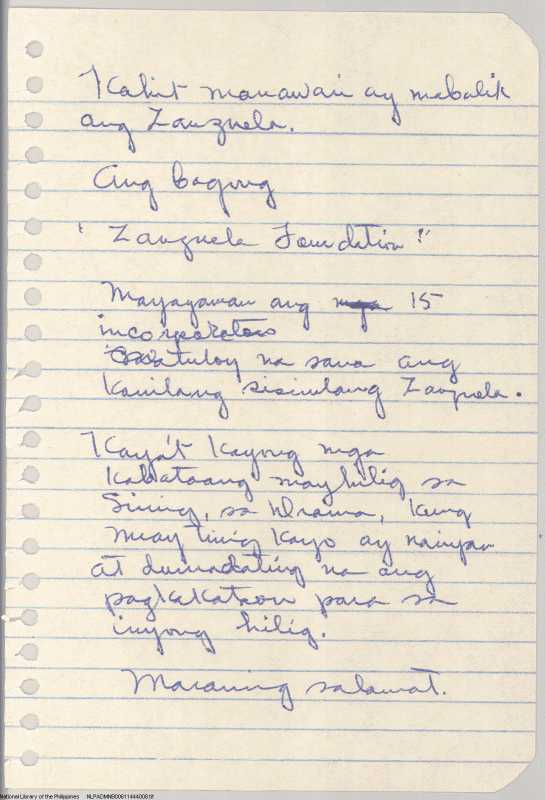 Kahit manawari ay mabalik
ang Zarzuela.
Ang bagong
" Zarzuela Foundation "
Mayayaman ang mga 15
incorporators
matuloy na sana ang
kanilang sisimulang Zarzuela.
Kaya't kayong mga
kabataang mayhilig sa
Sining, sa Drama, kung
may tinig kayo ay
at dumadating na ang
pagkakataon para sa
inyong hilig.
Maraming salamat.
National Library of the Philippines